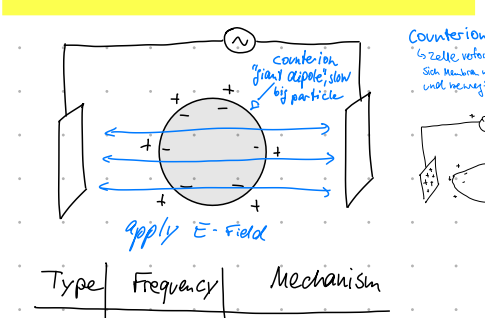 counterion
"giant dipole", slow
big particle
apply E-Field
Counterion
↳ Zelle verfor
sich Membran
und
Type Frequency Mechanism